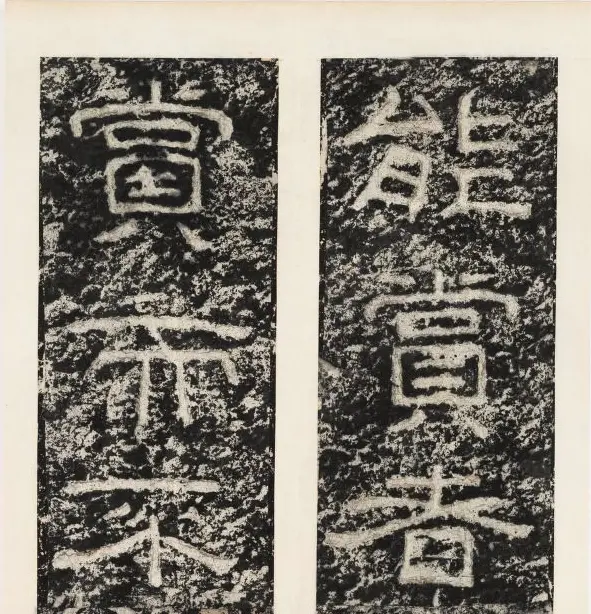 能賞者
賞而不